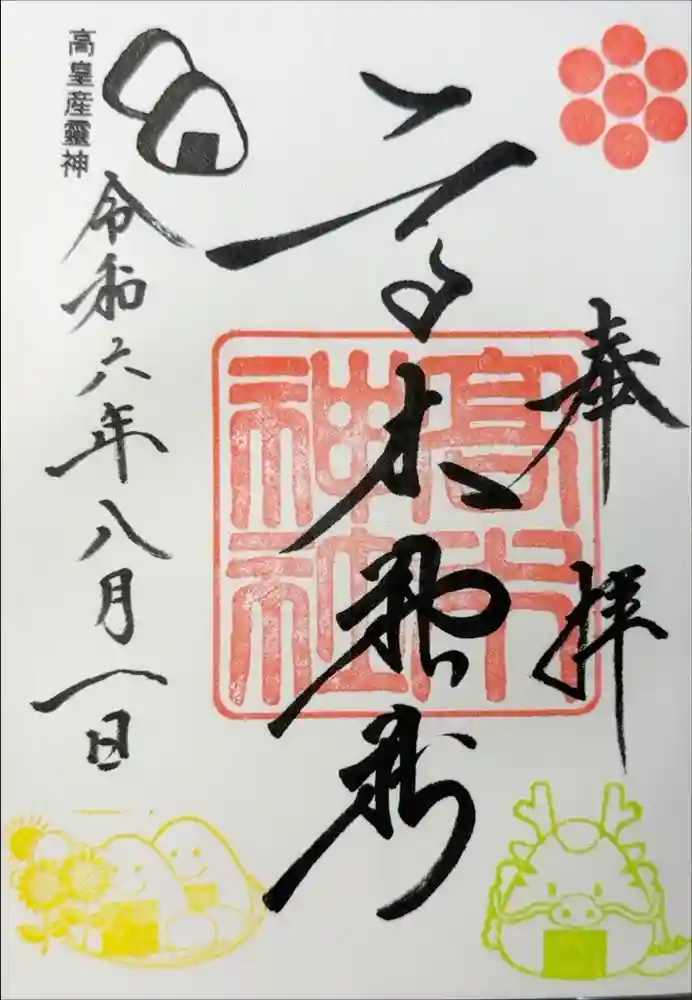 奉拝
高木神社
高木神社
高皇産靈神
令和六年八月一日